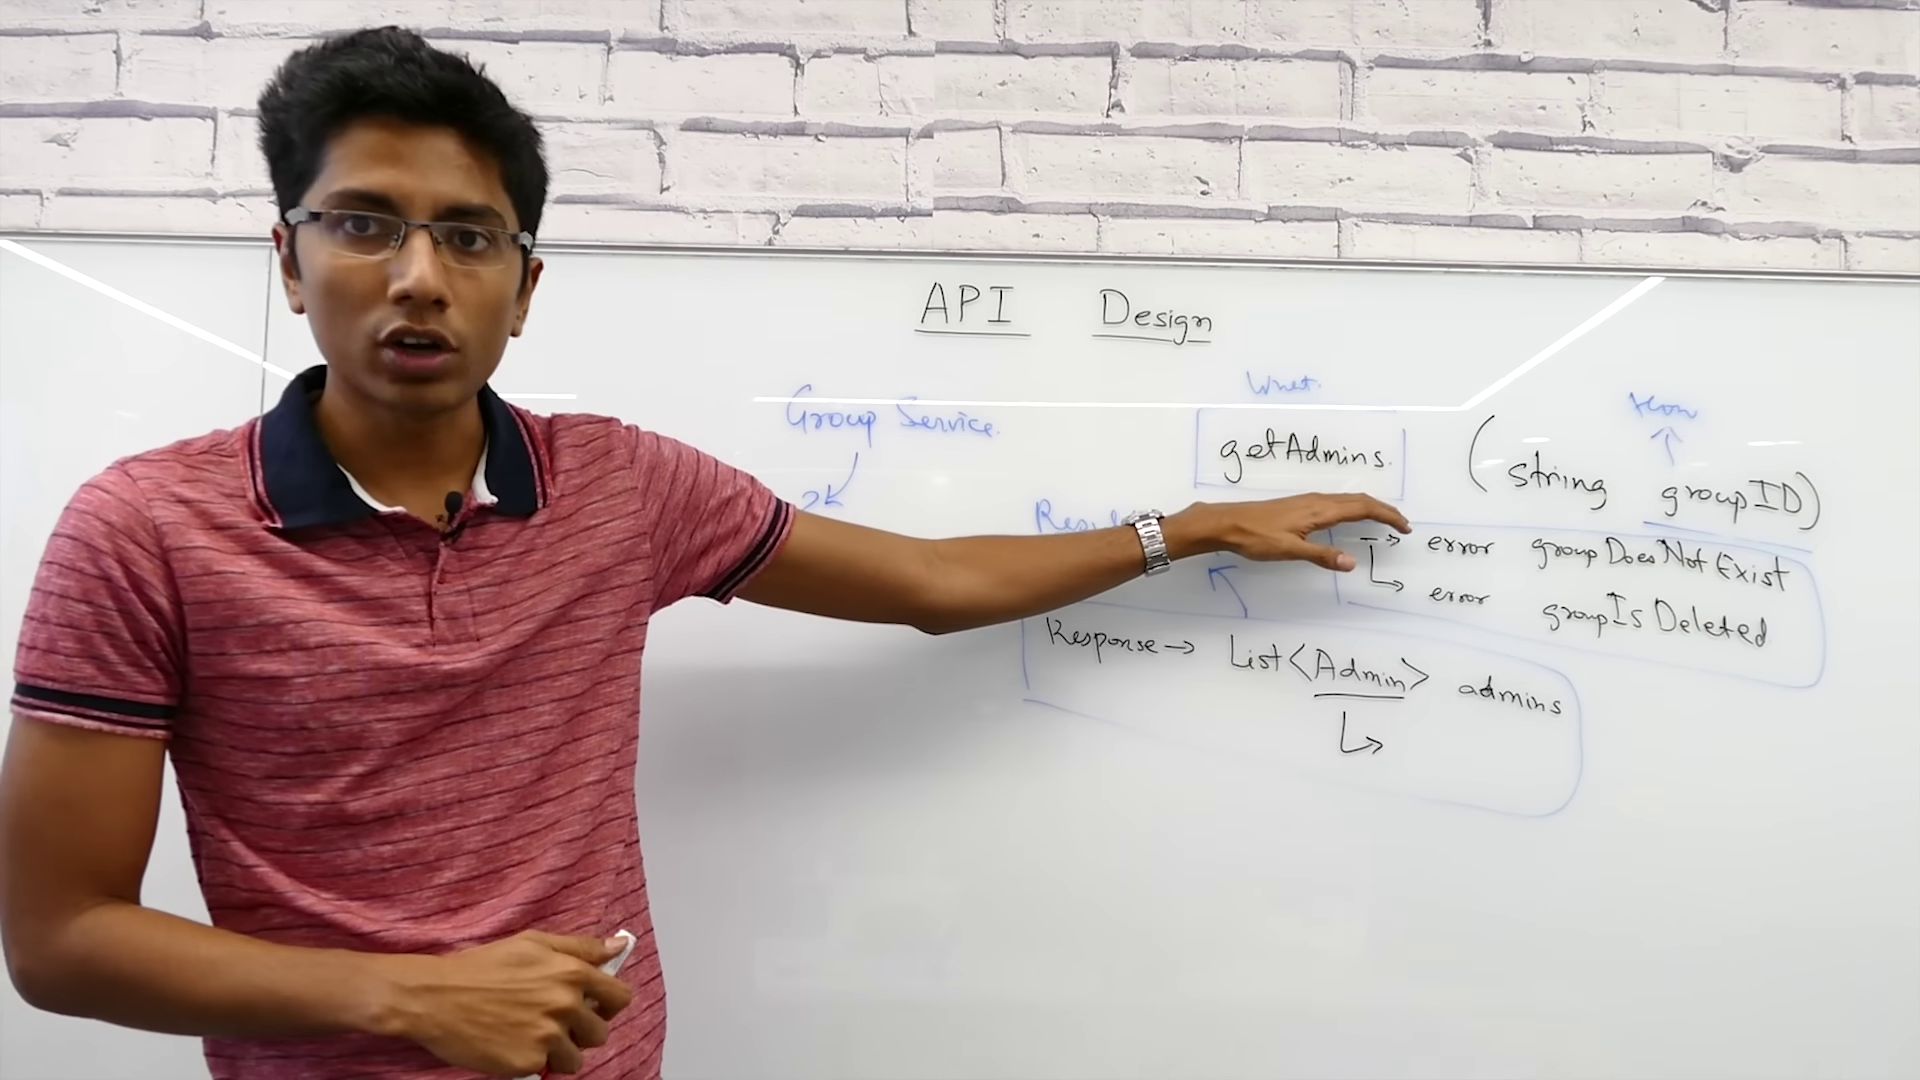 API Design
What.
How
Group Service.
getAdmins.
(string groupID)
→ error groupDoesNotExist
↳ error groupIsDeleted
Response → List<Admin> admins
↳